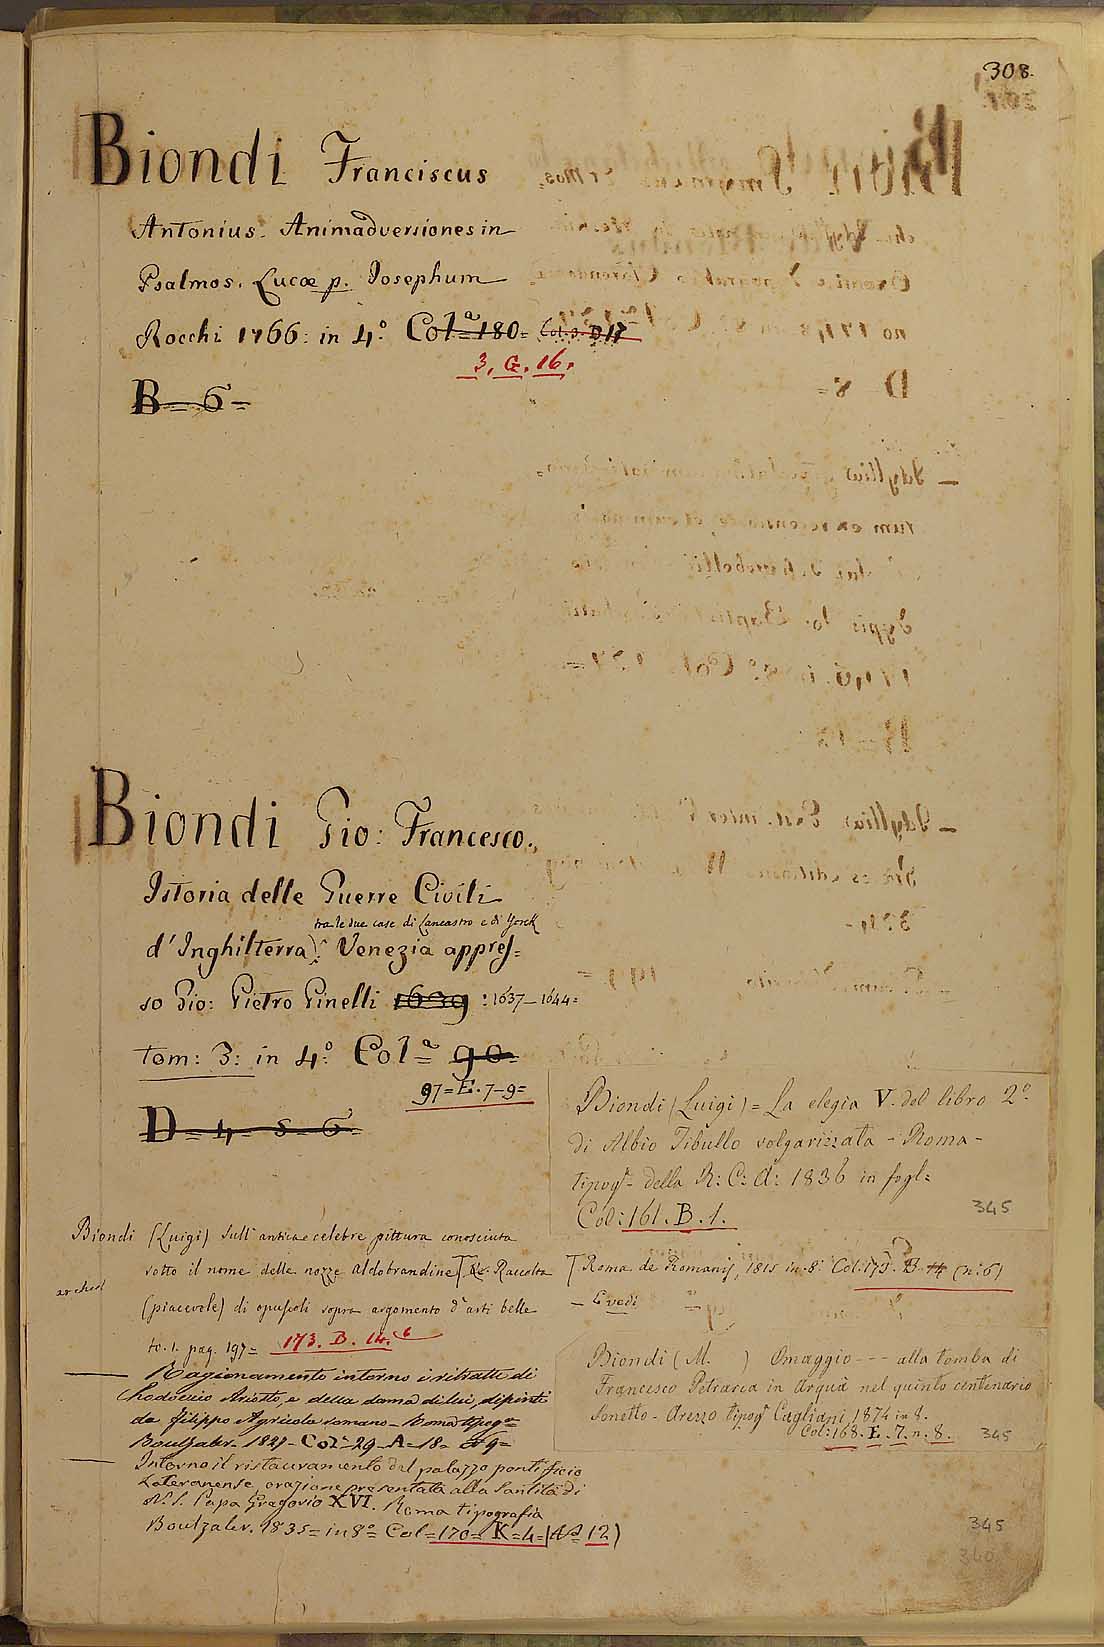 308.
Biondi Franciscus
Antonius. Animadversiones in
Psalmos. Lucæ p. Josephum
Rocchi 1766: in 4º. Colª=180=
3. G. 16.
B=6=
Biondi Gio: Francesco.
Istoria delle Guerre Civili
tra le due case di Lancastro e di Yorck
d'Inghilterra: Venezia appres=
so Gio: Pietro Pinelli 1639 : 1637–1644=
tom: 3: in 4º. Colª= 90=
97=E.7–9=
D=4=5=6=
Biondi (Luigi) = La elegia V. del libro 2º.
di Albio Tibullo volgarizzata – Roma –
tipogª. della R: C: A: 1836 in fogl=
Col: 161. B. 1.
345
Biondi (Luigi) Sull' antica e celebre pittura conosciuta
sotto il nome delle nozze aldobrandine Raccolta
(piacevole) di opuscoli sopra argomento d'arti belle
to. 1. pag. 197=
173. B. 14. 6
Roma de Romanis, 1815 in-8º. Col: 173. B. (n: 6)
– E vedi
Biondi (M. ) Omaggio --- alla tomba di
Francesco Petrarca in Arquà nel quinto centenario
Sonetto – Arezzo tipogª Cagliani, 1874 in 8.
Col: 168. E. 7. n. 8.
345
— Ragionamento intorno i ritratti di
Lhodovico Ariosto, e della dama di lui, dipinti
da Filippo Agricola romano – Roma tipogª=
Boulzaler – 182 – Col=29=A=18=
— Intorno il ristauramento del palazzo pontificio
Lateranense, orazione presentata alla Santità di
N. S. Papa Gregorio XVI. Roma tipografia
Boulzaler. 1835= in 8º= Col=170=K=4= 12)
345
340